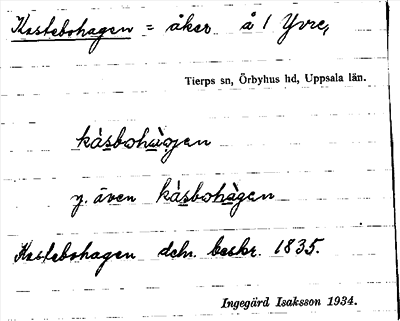 Kastebohagen = åker å 1 Yvre,
Tierps sn, Örbyhus hd, Uppsala län.
kàsbohàgen
y. även kàsbohàgen
Kastebohagen dehr. beskr. 1835.
Ingegärd Isaksson 1934.